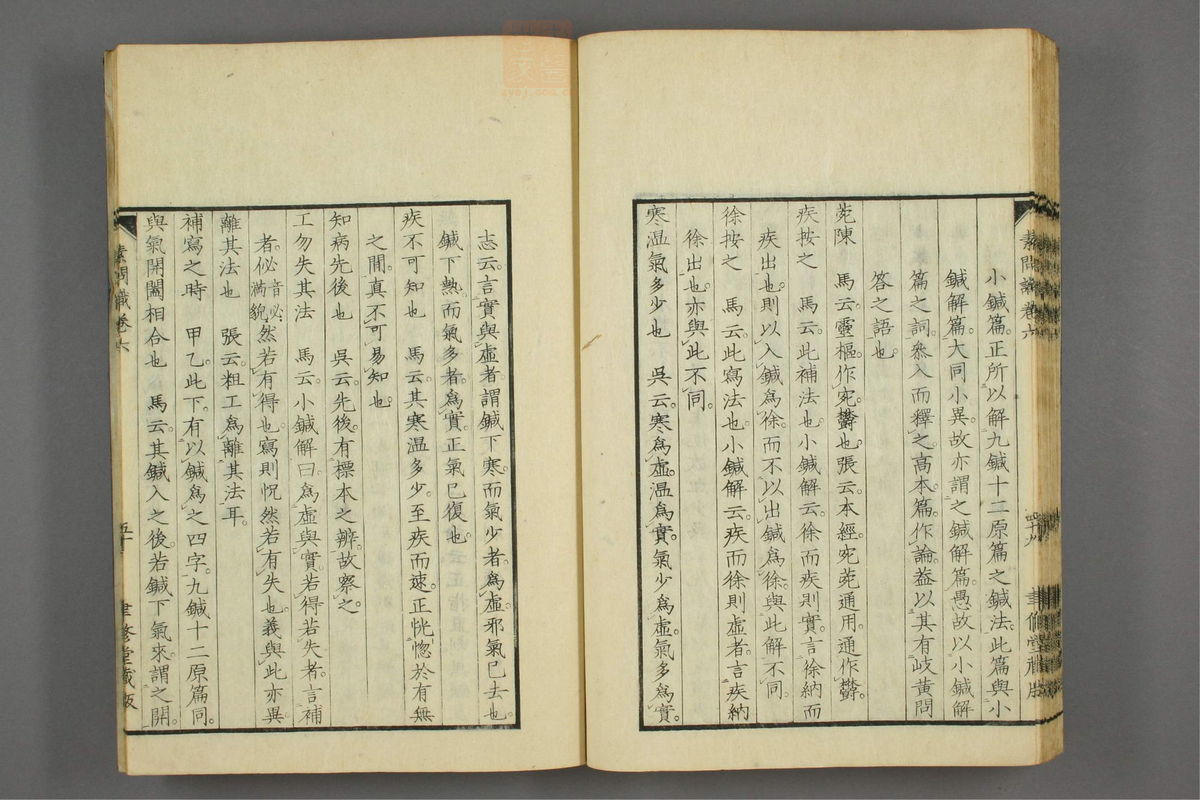 素問識卷六
小鍼篇正所以解九鍼十二原篇之鍼法此篇與小
鍼解篇大同小異故亦謂之鍼解篇愚故以小鍼解
篇之詞叅入而釋之高本篇作論葢以其有岐黃問
荅之語也
菀陳　馬云靈樞作宛鬱也張云本經宛菀通用通作鬱
疾按之　馬云此補法也小鍼解云徐而疾則實言徐納而
疾出也則以入鍼爲徐而不以出鍼爲徐與此解不同
徐按之　馬云此寫法也小鍼解云疾而徐則虛者言疾納
徐出也亦與此不同
寒温氣多少也　吳云寒爲虛温爲實氣少爲虛氣多爲實
志云言實與虛者謂鍼下寒而氣少者爲虛邪氣已去也
鍼下熱而氣多者爲實正氣已復也
疾不可知也　馬云其寒温多少至疾而速正恍惚於有無
之間真不可易知也
知病先後也　吳云先後有標本之辨故察之
工勿失其法　馬云小鍼解曰爲虛與實若得若失者言補
者佖音必滿貌然若有得也寫則怳然若有失也義與此亦異
離其法也　張云粗工爲離其法耳
補寫之時　甲乙此下有以鍼爲之四字九鍼十二原篇同
與氣開闔相合也　馬云其鍼入之後若鍼下氣來謂之開
素問識卷六
五十
聿修堂藏版